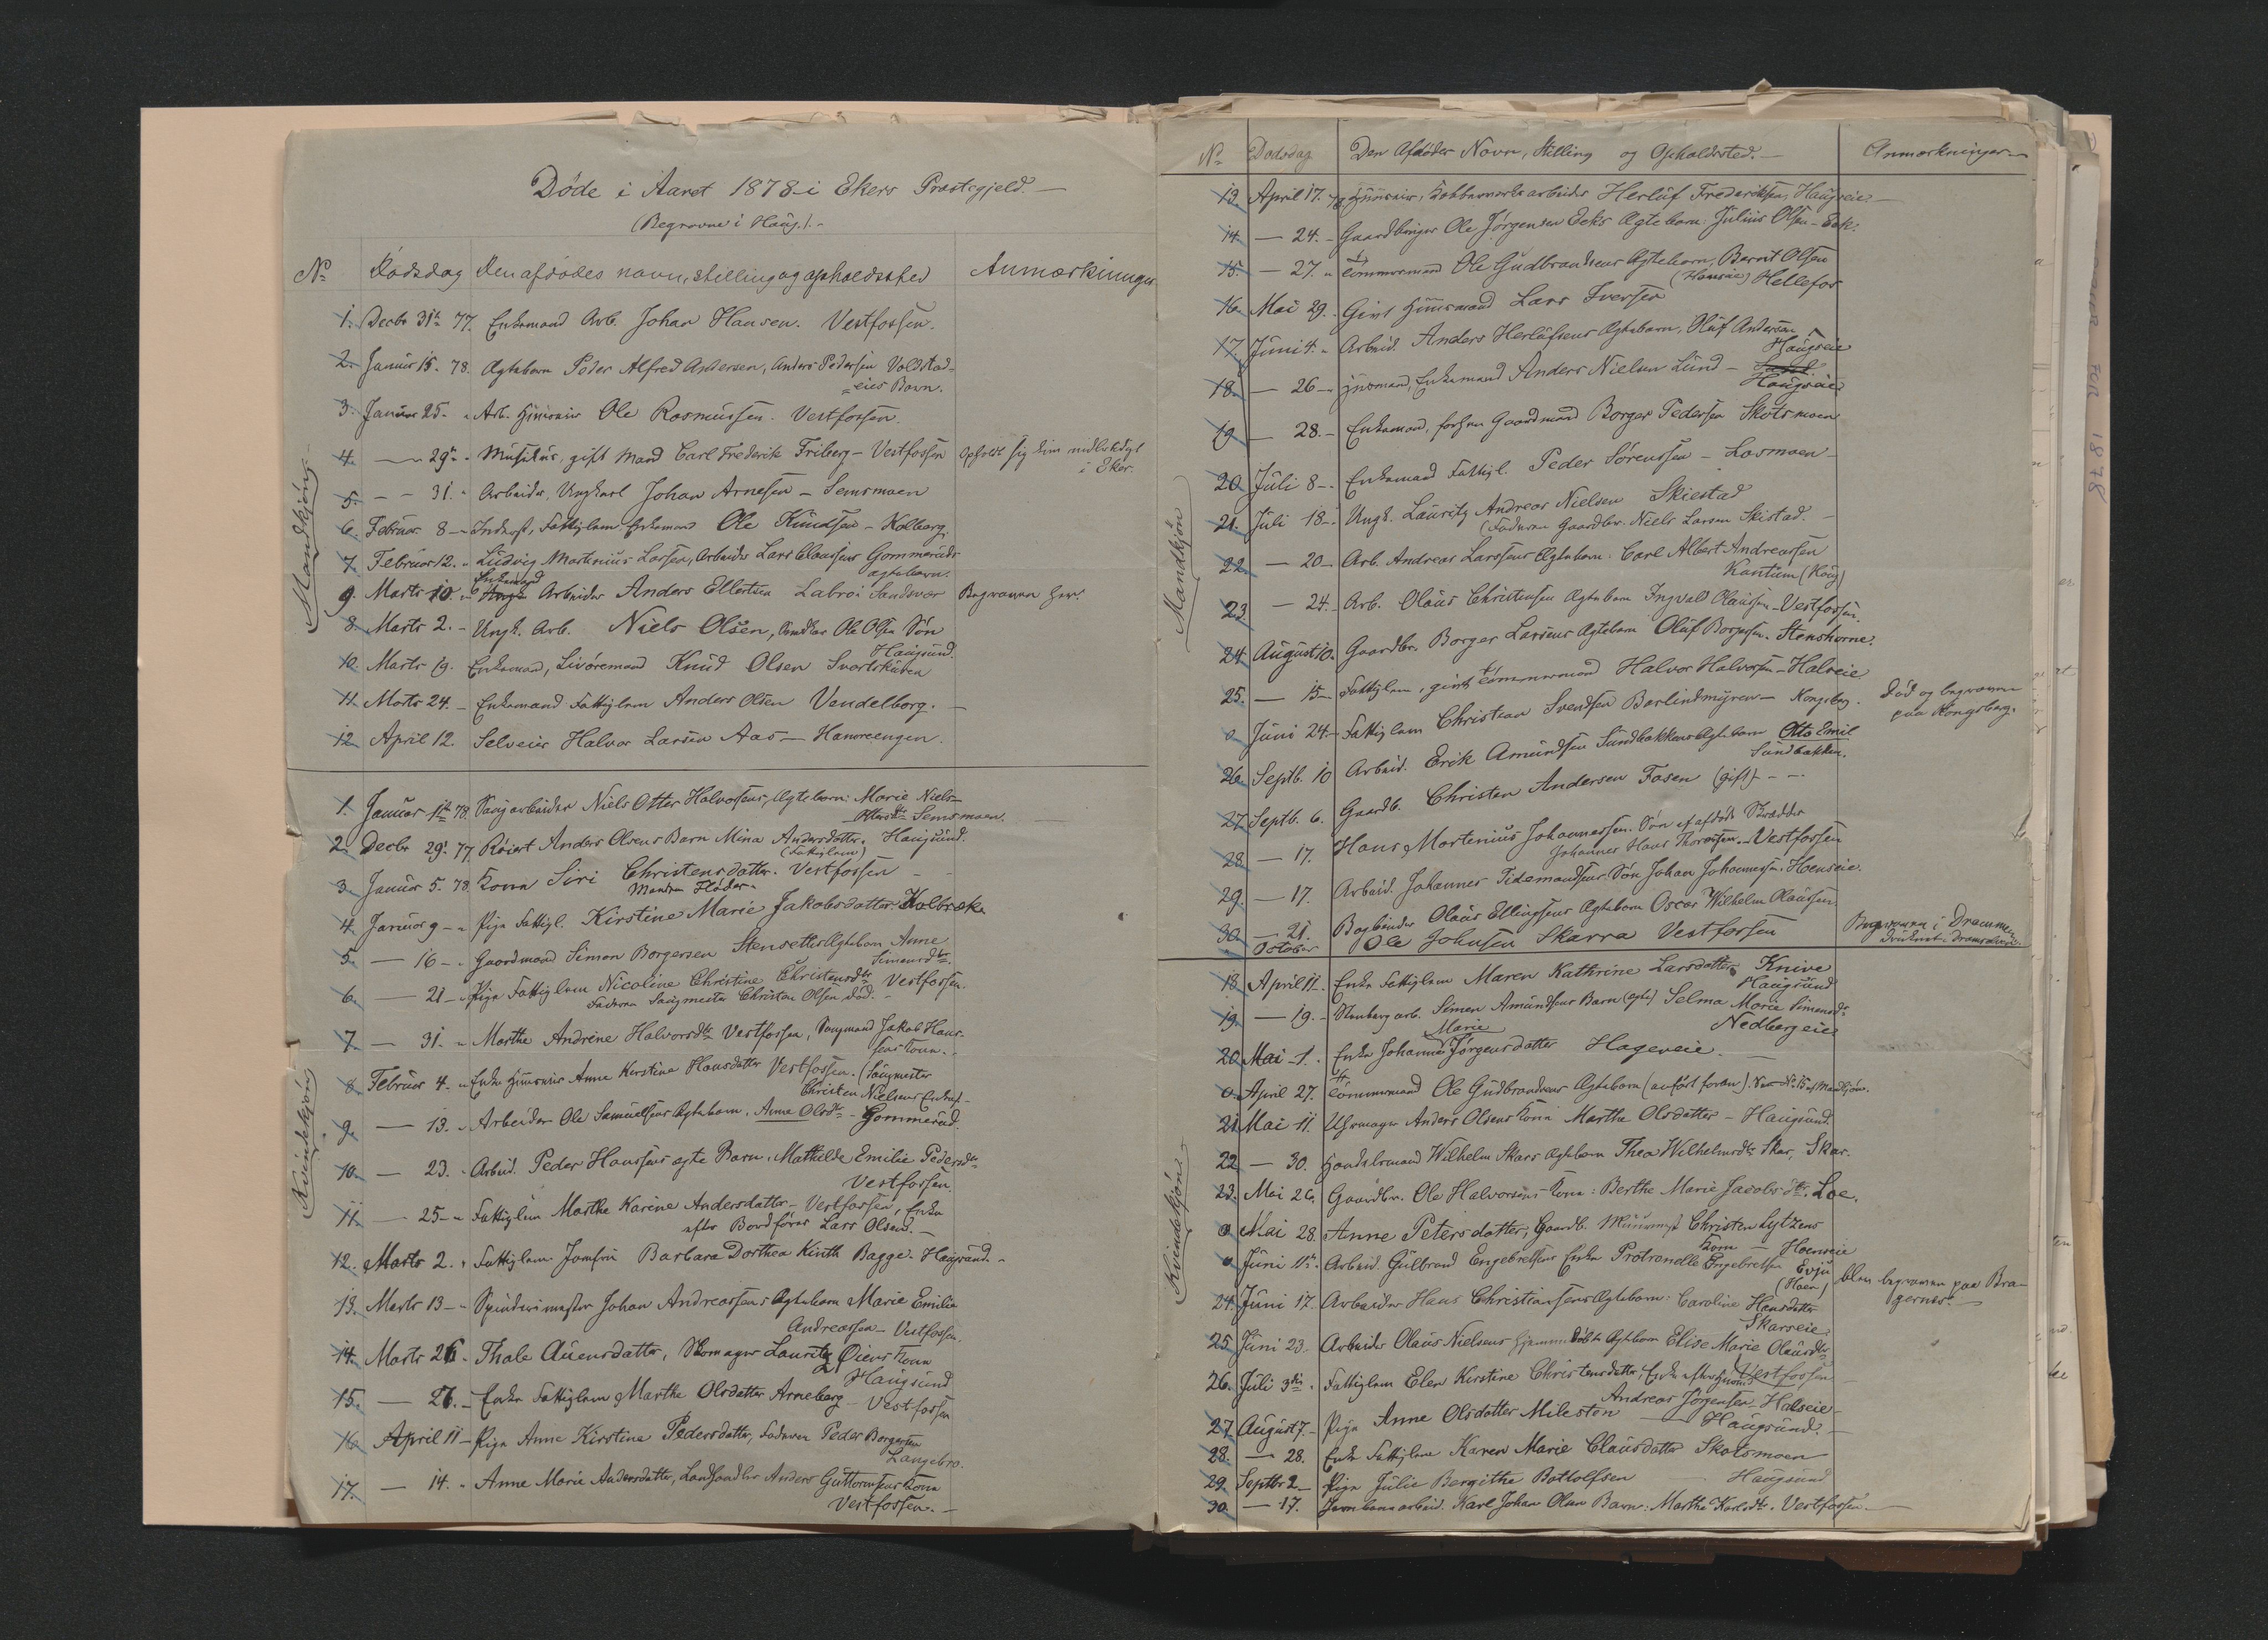 Døde i Aaret 1878 i Ekers Præstegjeld. —
(Begravne i Haug.). -
No Dødsdag Den afdødes navn, stilling og opholdssted Anmærkninger
Mandkjøn
1. Decbr 31te 77. Enkemand Arb. Johan Hansen. Vestfossen.
2. Januar 15. 78. Ægtebarn Peder Alfred Andersen, Anders Pedersen Voldstad-
eies Barn.
3. Januar 25. Arb. Ole Rasmussen. Vestfossen.
4. — 29de Musikus, gift Mand Carl Frederik Friberg - Vestfossen Opholdt sig kun midlertidigt
i Eker.
5. — 31. Arbeider, Ungkarl Johan Arnesen - Semsmoen
6. Februar 8 - Inderst, Fattiglem Enkemand Ole Knudsen - Kolberg.
7. Februar 12. Ludvig Martinius Larsen, Arbeider Lars Clausens Gommeruds
ægtebarn.
Enkemand
9. Marts 10. Arbeider Anders Ellertsen Labroi Sandsvær Begraven her.
8. Marts 2. - Ungk. Arb. Niels Olsen, Ole Olsen Søn
Haugsund.
10. Marts 19. Enkemand, Livøremand Knud Olsen Svartskuben
11. Marts 24. - Enkemand Fattiglem Anders Olsen Vendelborg. —
12. April 12. Selveier Halvor Larsen Aas - Hanreengen.
Kvindekjøn
1. Januar 1ste 78. Saugarbeider Niels Otter Halvorsens, Ægtebarn: Marie Niels-
Semsmoen.
2. Decbr 29. 77. Reiert Anders Olsens Barn Mina Andersdatter. Haugsund.
(Fattiglem)
3. Januar 5. 78. Kona Siri Christensdatter. Vestfossen
Manden Fløder.
4. Januar 9 - Pige Fattigl. Kirstine Marie Jakobsdatter Kolbræk.
5. — 16 - Gaardmand Simon Borgersen Stensets Ægtebarn Anne
Simensdtr.
6. — 21 - Pige Fattiglem Nicoline Christine Christensdtr Vestfossen.
Faderen Saugmester Christen Olsen død. -
7. — 31. Marthe Andrine Halvorsdtr Vestfossen, Saugmand Jakob Hans-
sens Kone.
8. Februar 4. Enke Anne Kirstine Hansdatter Vestfossen. (Saugmester
Christen Nielsens Enke) -
9. — 13. Arbeider Ole Samuelsens Ægtebarn. Anne Olsdtr - Gommerud.
10. — 23. Arbeid. Peder Hanssens ægte Barn. Mathilde Emilie Pedersdtr
Vestfossen.
11. — 25 - Fattiglem Marthe Karine Andersdatter - Vestfossen, Enke
efter Bordfører Lars Olsen. -
12. Marts 2. Fattiglem Jomfru Barbara Dorthea Kinth Bagge. Haugsund. -
13. Marts 13 - Spinderimester Johan Andreassens Ægtebarn Marie Emilie
Andreassen - Vestfossen.
14. Marts 26. Thale Auensdatter, Skomager Lauritz Øiens Kone
Haugsund
15. — 26. - Enke Fattiglem Marthe Olsdatter Arneberg - Vestfossen
16. April 11 - Pige Anne Kirstine Pedersdatter, Faderen Peder Borgersen
Langebro.
17. — 14. Anne Marie Andersdatter, Landhandler Anders Guttormsens Kone
Vestfossen. -
No Dødsdag Den Afdødes Navn, Stilling og Opholdssted. - Anmærkninger
Mandkjøn
13. April 17. 78 Kobberværksarbeider Herluf Frederiksen, Haugseie. -
14. — 24. - Gaardbruger Ole Jørgensen Eeks Ægtebarn: Julius Olsen - Eek.
15. — 27. Tømmermand Ole Gudbrandsens Ægtebarn, Bernt Olsen
(Hoenseie) Hellefos
16. Mai 29. Gift Huusmand Lars Iversen
17. Juni 4. Arbeid. Anders Herlufsens Ægtebarn, Oluf Andersen
Haugseie
18. — 26 - Enkemand Anders Nielsen Lund -
Haugseie
19. — 28. - Enkemand, forhen Gaardmand Borger Pedersen Skotsmoen
20. Juli 8 - Enkemand Fattigl. Peder Sørenssen - Losmoen -
21. Juli 18 - Ungk. Lauritz Andreas Nielsen Skiestad
(Faderen Gaardbr. Niels Larsen Skistad. -
22. — 20 - Arb. Andreas Larssens Ægtebarn: Carl Albert Andreassen
Kantum (Haug)
23. — 24. - Arb. Olaus Christensen Ægtebarn Ingvald Olaussen - Vestfossen.
24. August 10. Gaardbr. Borger Larsens Ægtebarn Oluf Borgersen. Stenshorne.
25. — 15 - Fattiglem, gift Tømmermand Halvor Halvorsen - Halseie
0. Juni 24. - Fattiglem Christian Svendsen Barlindmyren - Kongsberg. Død og begraven
paa Kongsberg.
26. Septb. 10 Arbeid. Erik Amundsen Sundbakkens Ægtebarn Otto Emil
Sundbakken.
27. Septb. 6. Gaardb. Christen Andersen Fosen (gift) - - -
28. — 17. Hans Martenius Johannessen. Søn af afdøde Skrædder
Johannes Hans Thoresen. - Vestfossen
29. — 17. Arbeid. Johannes Tidemandsens Søn Johan Johannessen. Hoenseie.
30. — 21. Bogbinder Olaus Ellingsens Ægtebarn Oscar Wilhelm Olaussen.
October Ole Johnsen Skarra Vestfossen Begraven i Drammen
Kvindekjøn
18. April 11. Enke Fattiglem Maren Kathrine Larsdatter Knive
Haugsund
19. — 19. - Stenbergarb. Simen Amundsens Barn (ægte) Selma Marie Simensdtr.
Nedbergeie
Marie
20. Mai 1. Enke Johanne Jørgensdatter Hageneie. —
0. April 27. Tømmermand Ole Gudbrandsens Ægtebarn (anført foran). No 15 af Mandkjøn.
21. Mai 11. Uhrmager Anders Olsens Kone Marthe Olsdatter - Haugsund.
22. — 30. Handelsmand Wilhelm Skars Ægtebarn Thea Wilhelmsdtr Skar, Skar.
23. Mai 26. Gaardbr. Ole Halvorsens Kone: Berthe Marie Jacobsdtr. Loe.
0 Mai 28. Anne Petersdatter, Gaardb. Christen Lytzens
Kone - Hoenseie
0 Juni 11. Arbeid. Gulbrand Engebretsens Enke Protrenelle Engebretsen Evju
(Hoen) blev begraven paa Bra-
gernes. -
24. Juni 17. Arbeider Hans Christiansens Ægtebarn: Caroline Hansdatter
Skarseie.
25. Juni 23. Arbeider Olaus Nielsens hjemmedøbt Ægtebarn Elise Marie Olausdtr
Vestfossen
26. Juli 3die. Fattiglem Elen Kirstine Christensdatter, Enke efter
Andreas Jørgensen - Halseie -
27. August 7. - Pige Anne Olsdatter Milesten — Haugsund. -
28. — 28. Enke Fattiglem Karen Marie Clausdatter Skotsmoen
29. Septbr 2 - Pige Julie Bergithe Bottolfsen — Haugsund
30. — 17. Jernbanearbeid. Karl Johan Olsens Barn: Marthe Karlsdtr. Vestfossen. —
1878